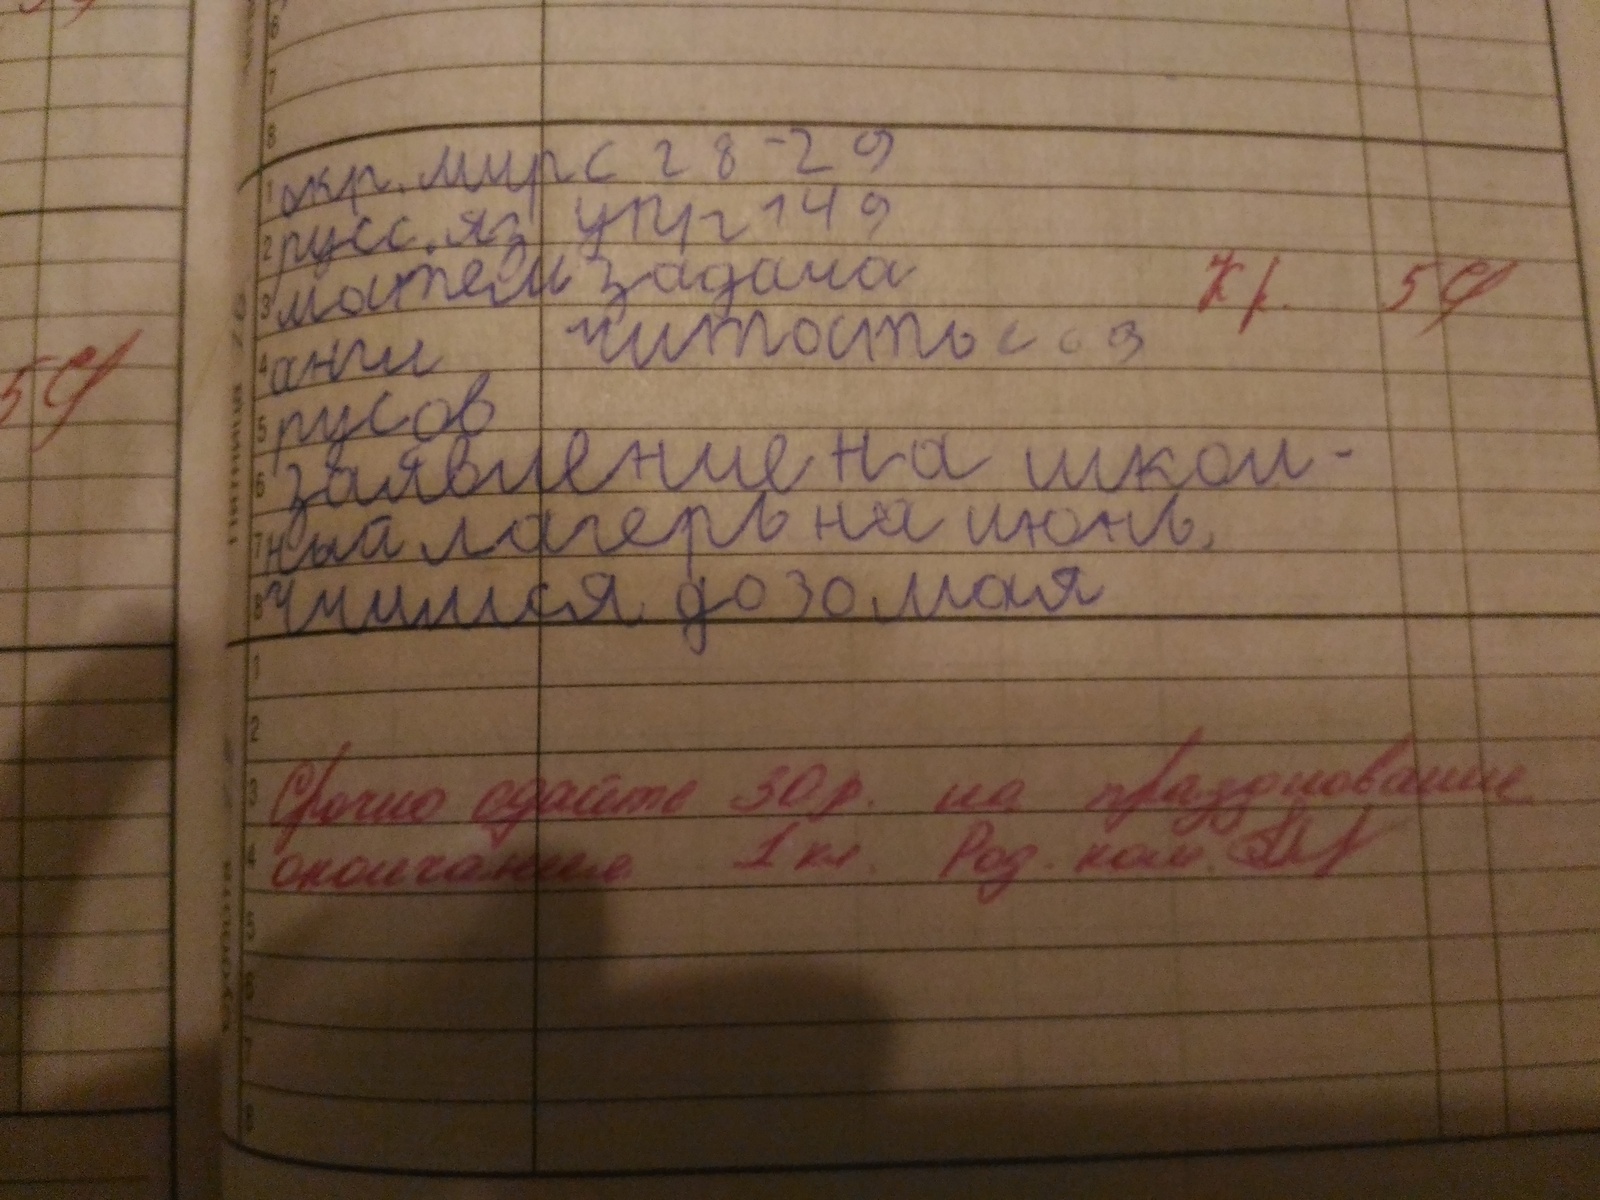 6
7
8
1 окр. мир с 28-29
2 русс. яз упр 149
3 матем задача Кр. 5
4 англ читать
5 русов
6 заявление на школ-
7 ный лагерь на июнь,
8 учимся до 30 мая
5
пятница
1
2
3 Срочно сдайте 30 р. на празднование
4 окончания 1 кл. Род. ком.
5
6
7
8
суббота